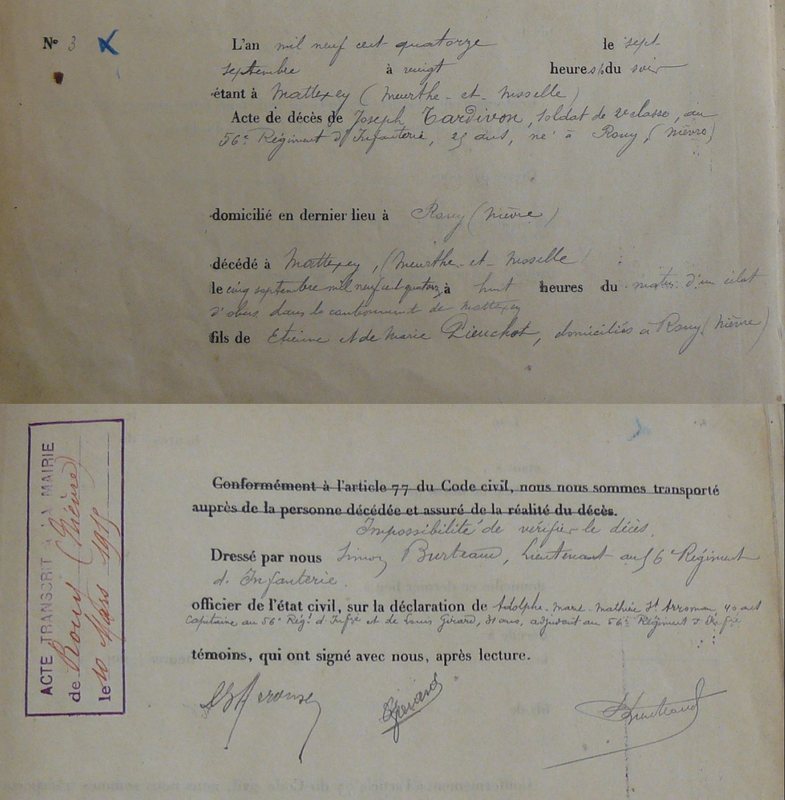 N° 3 L'an mil neuf cent quatorze le sept
septembre à vingt heures du soir
étant à Mattexey (Meurthe-et-Moselle)
Acte de décès de Joseph Tardivon, soldat de 2e classe, au
56e Régiment d'Infanterie, 25 ans, né à Rouy, (Nièvre)
domicilié en dernier lieu à Rouy (Nièvre)
décédé à Mattexey, (Meurthe-et-Moselle)
le cinq septembre mil neuf cent quatorze à huit heures du matin d'un éclat
d'obus dans le cantonnement de Mattexey
fils de Etienne et de Marie Pieuchot, domiciliés à Rouy (Nièvre)
ACTE TRANSCRIT à LA MAIRIE
de Rouy (Nièvre)
le 10 Mars 1915
Conformément à l'article 77 du Code civil, nous nous sommes transporté
auprès de la personne décédée et assuré de la réalité du décès.
Impossibilité de vérifier le décès.
Dressé par nous Simon, Lieutenant au 56e Régiment
d'Infanterie.
officier de l'état civil, sur la déclaration de Adolphe-Marie-Mathieu St Arroman, 40 ans
Capitaine au 56e Rég. d'Infie et de Louis Girard, 31 ans, adjudant au 56e Régiment d'Infie
témoins, qui ont signé avec nous, après lecture.
Girard